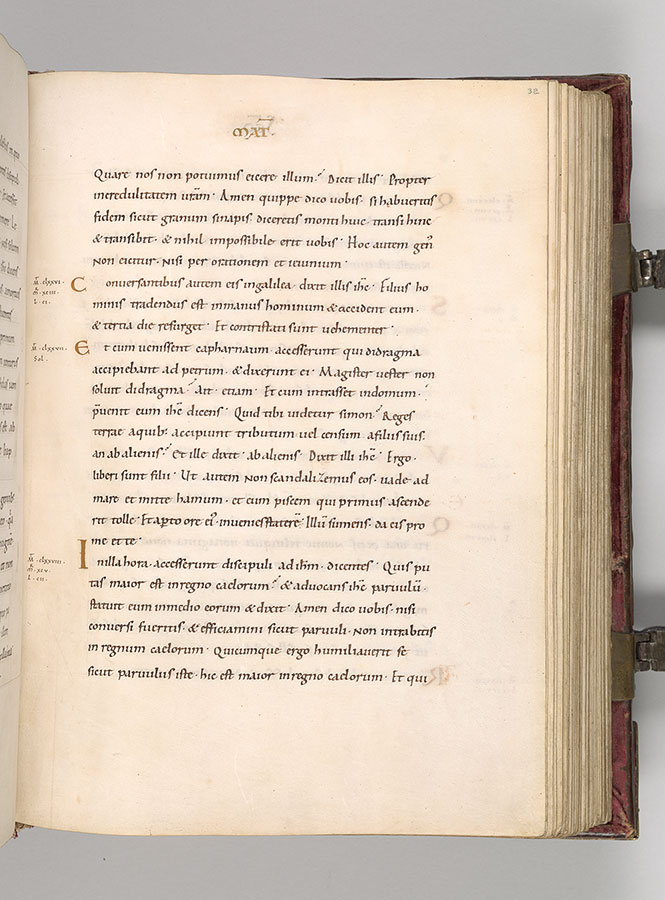 38
MAT̅.
Quare nos non potuimus eicere illum? Dicit illis· Propter
incredulitatem ur̅am· Amen quippe dico uobis· si habueritis
fidem sicut granum sinapis diceretis monti huic· transi hinc
& transibit· & nihil impossibile erit uobis· Hoc autem gen̅
Non eicitur· Nisi per orationem et ieiunium·
m̅. clxxvi.
Conuersantibus autem eis ingalilea· dixit illis ih̅c· Filius ho
minis tradendus est inmanus hominum & occident eum·
& tertia die resurget· Et contristati sunt uehementer·
m̅. clxxvii.
Sol.
Et cum uenissent capharnaum· accesserunt qui didragma
accipiebant ad petrum· & dixerunt ei· Magister uester non
soluit didragma? Ait· etiam· Et cum intrasset indomum·
p̅uenit eum ih̅c dicens· Quid tibi uidetur simon? Reges
terrae aquib; accipiunt tributum uel censum· afiliis suis·
an abalienis? Et ille dixit· ab alienis· Dixit illi ih̅c· Ergo·
liberi sunt filii· Ut autem Non scandalizemus eos· uade ad
mare et mitte hamum· et eum piscem qui primus ascende
rit tolle· Et ap̅to ore ei' inuenies statere̅· Illu̅ sumens· da eis pro
me et te·
m̅. clxxviii.
Inilla hora· accesserunt discipuli ad ih̅m· dicentes· Quis pu
tas maior est inregno caelorum? & aduocans ih̅c paruulu̅·
statuit eum inmedio eorum & dixit· Amen dico uobis· nisi
conuersi fueritis· & efficiamini sicut paruuli· Non intrabitis
in regnum caelorum· Quicumque ergo humiliauerit se
sicut paruulus iste· hic est maior inregno caelorum· Et qui